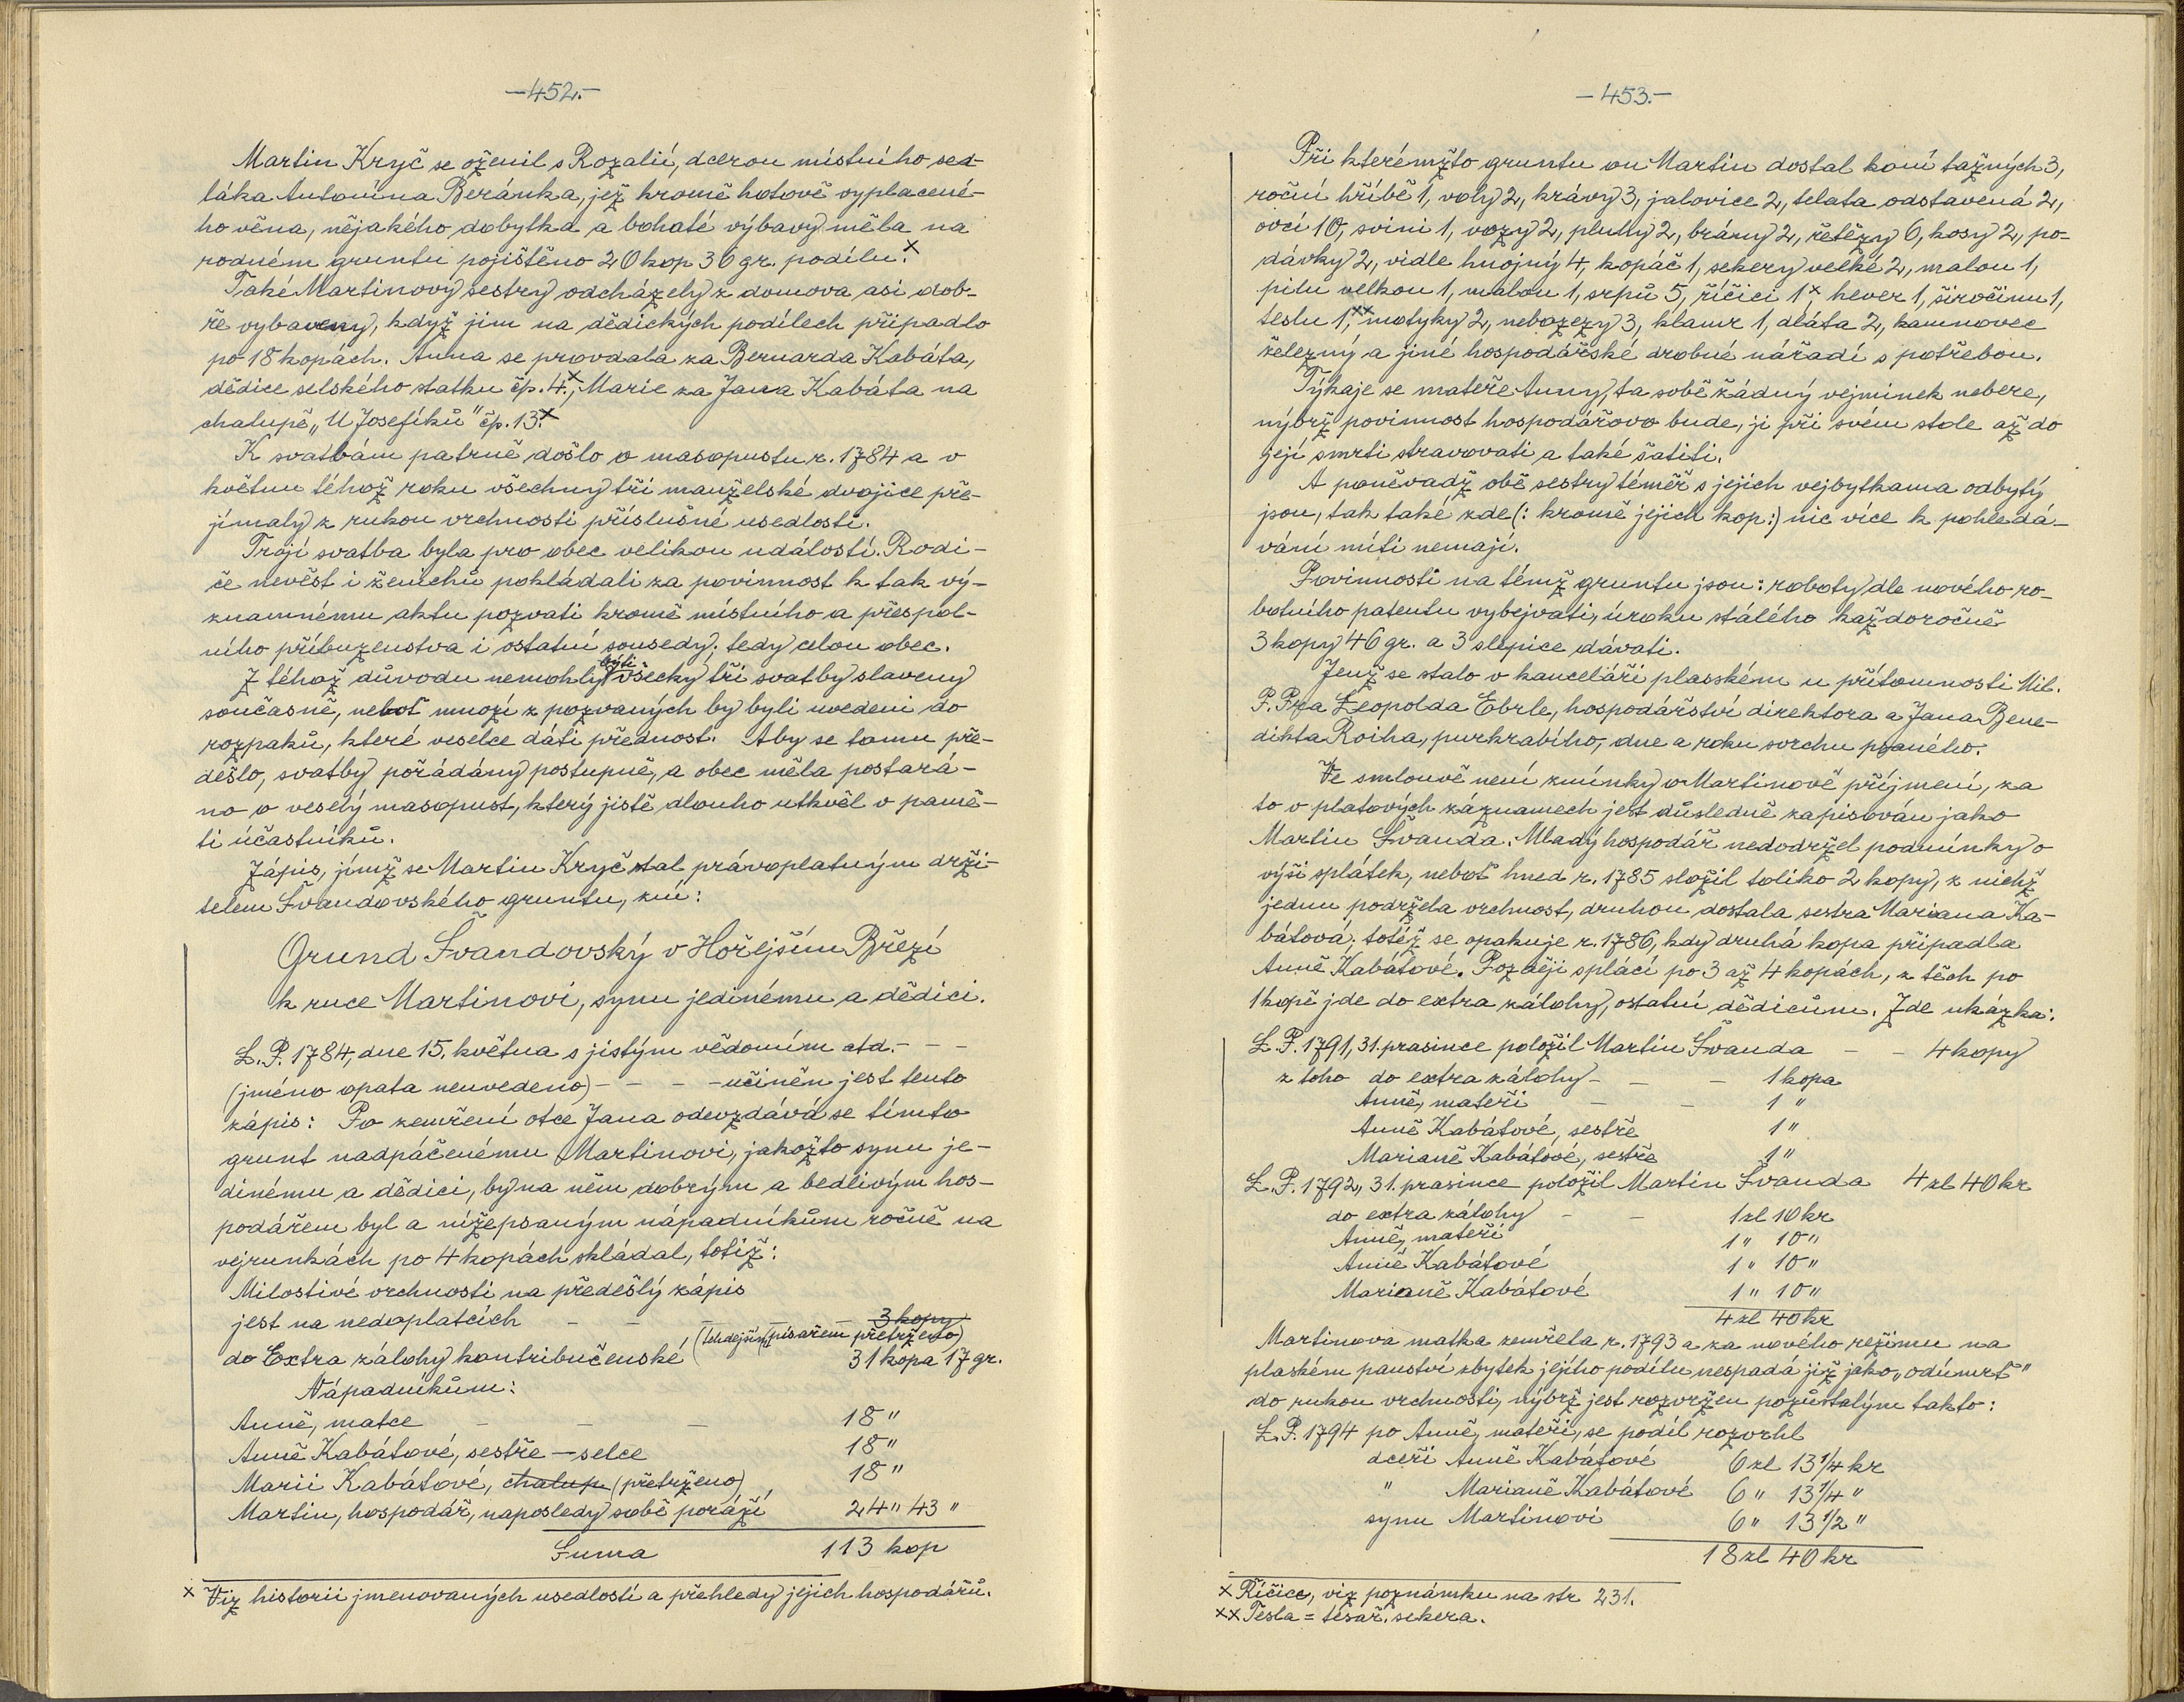 —452.—
Martin Kryč se oženil s Rozalií, dcerou místního sed-
láka Antonína Beránka, jež kromě hotově vyplacené-
ho věna, nějakého dobytka a bohaté výbavy měla na
rodném gruntu pojištěno 20 kop 36 gr. podílu.x
Také Martinovy sestry odcházely z domova asi dob-
ře vybaveny, když jim na dědických podílech připadlo
po 18 kopách. Anna se provdala za Bernarda Kabáta,
dědice selského statku čp. 4.x, Marie za Jana Kabáta na
chalupě „U Josefíků" čp. 13.x
K svatbám patrně došlo o masopustu r. 1784 a v
květnu téhož roku všechny tři manželské dvojice pře-
jímaly z rukou vrchnosti příslušné usedlosti.
Trojí svatba byla pro obec velikou událostí. Rodi-
če nevěst i ženichů pokládali za povinnost k tak vý-
znamnému aktu pozvati kromě místního a přespol-
ního příbuzenstva i ostatní sousedy, tedy celou obec.
Z téhož důvodu nemohly býti všecky tři svatby slaveny
současně, neboť mnozí z pozvaných by byli uvedeni do
rozpaků, které veselce dáti přednost. Aby se tomu pře-
dešlo, svatby pořádány postupně, a obec měla postará-
no o veselý masopust, který jistě dlouho utkvěl v pamě-
ti účastníků.
Zápis, jímž se Martin Kryč stal právoplatným drži-
telem Švandovského gruntu, zní:
Grund Švandovský v Hořejším Březí
k ruce Martinovi, synu jedinému a dědici.
L. P. 1784, dne 15. května s jistým vědomím atd. - - -
(jméno opata neuvedeno) - - - - učiněn jest tento
zápis: Po zemření otce Jana odevzdává se tímto
grunt nadpáčenému Martinovi, jakožto synu je-
dinému a dědici, by na něm dobrým a bedlivým hos-
podářem byl a nížepsaným nápadníkům ročně na
vejrunkách po 4 kopách skládal, totiž:
Milostivé vrchnosti na předešlý zápis
jest na nedoplatcích - - - - 3 kopy
(tehdejším písařem přetrženo)
do Extra zálohy kontribučenské 31 kopa 17 gr.
Nápadníkům:
Anně, matce - - - 18 "
Anně Kabátové, sestře — selce 18 "
Marii Kabátové, chalup (přetrženo) 18 "
Martin, hospodář, naposledy sobě poráží 24 " 43 "
Suma 113 kop
x Viz historii jmenovaných usedlostí a přehledy jejich hospodářů.
—453.—
Při kterémžto gruntu on Martin dostal koní tažných 3,
roční hříbě 1, voly 2, krávy 3, jalovice 2, telata odstavená 2,
ovcí 10, svini 1, vozy 2, pluhy 2, brány 2, řetězy 6, kosy 2, po-
dávky 2, vidle hnojný 4, kopáč 1, sekery velké 2, malou 1,
pilu velkou 1, malou 1, srpů 5, říčici 1x, hever 1, širočinu 1,
teslu 1,xx motyky 2, nebozezy 3, klamr 1, dláta 2, kamnovec
železný a jiné hospodářské drobné nářadí s potřebou.
Týkaje se mateře Anny, ta sobě žádný vejminek nebere,
nýbrž povinnost hospodářova bude, ji při svém stole až do
její smrti stravovati a také šatiti.
A poněvadž obě sestry téměř s jejich vejbytkama odbytý
jsou, tak také zde (: kromě jejich kop:) nic více k pohledá-
vání míti nemají.
Povinnosti na témž gruntu jsou: roboty dle nového ro-
botního patentu vybejvati, úroku stálého každoročně
3 kopy 46 gr. a 3 slepice dávati.
Jenž se stalo v kanceláři plasském u přítomnosti Mil.
P. Pza Leopolda Ebrle, hospodářství direktora a Jana Bene-
dikta Roiha, purkrabího, dne a roku svrchu psaného.
Ve smlouvě není zmínky o Martinově příjmení, za
to v platových záznamech jest důsledně zapisován jako
Martin Švanda. Mladý hospodář nedodržel podmínky o
výši splátek, neboť hned r. 1785 složil toliko 2 kopy, z nichž
jednu podržela vrchnost, druhou dostala sestra Mariana Ka-
bátová; totéž se opakuje r. 1786, kdy druhá kopa připadla
Anně Kabátové. Později splácí po 3 až 4 kopách, z těch po
1 kopě jde do extra zálohy, ostatní dědicům. Zde ukázka:
L. P. 1791, 31. prasince položil Martin Švanda - - 4 kopy
z toho do extra zálohy - - - 1 kopa
Anně, mateři - - 1 "
Anně Kabátové, sestře 1 "
Marianě Kabátové, sestře 1 "
L. P. 1792, 31. prasince položil Martin Švanda 4 zl 40 kr
do extra zálohy - - 1 zl 10 kr
Anně, mateři 1 " 10 "
Anně Kabátové 1 " 10 "
Marianě Kabátové 1 " 10 "
4 zl 40 kr
Martinova matka zemřela r. 1793 a za nového režimu na
plaském panství zbytek jejího podílu nespadá již jako „odúmrť"
do rukou vrchnosti, nýbrž jest rozvržen pozůstalým takto:
L. P. 1794 po Anně, mateři, se podíl rozvrhl
dceři Anně Kabátové 6 zl 13 1/4 kr
" Marianě Kabátové 6 " 13 1/4 "
synu Martinovi 6 " 13 1/2 "
18 zl 40 kr
x Říčice, viz poznámku na str 231.
xx Tesla = tesař. sekera.